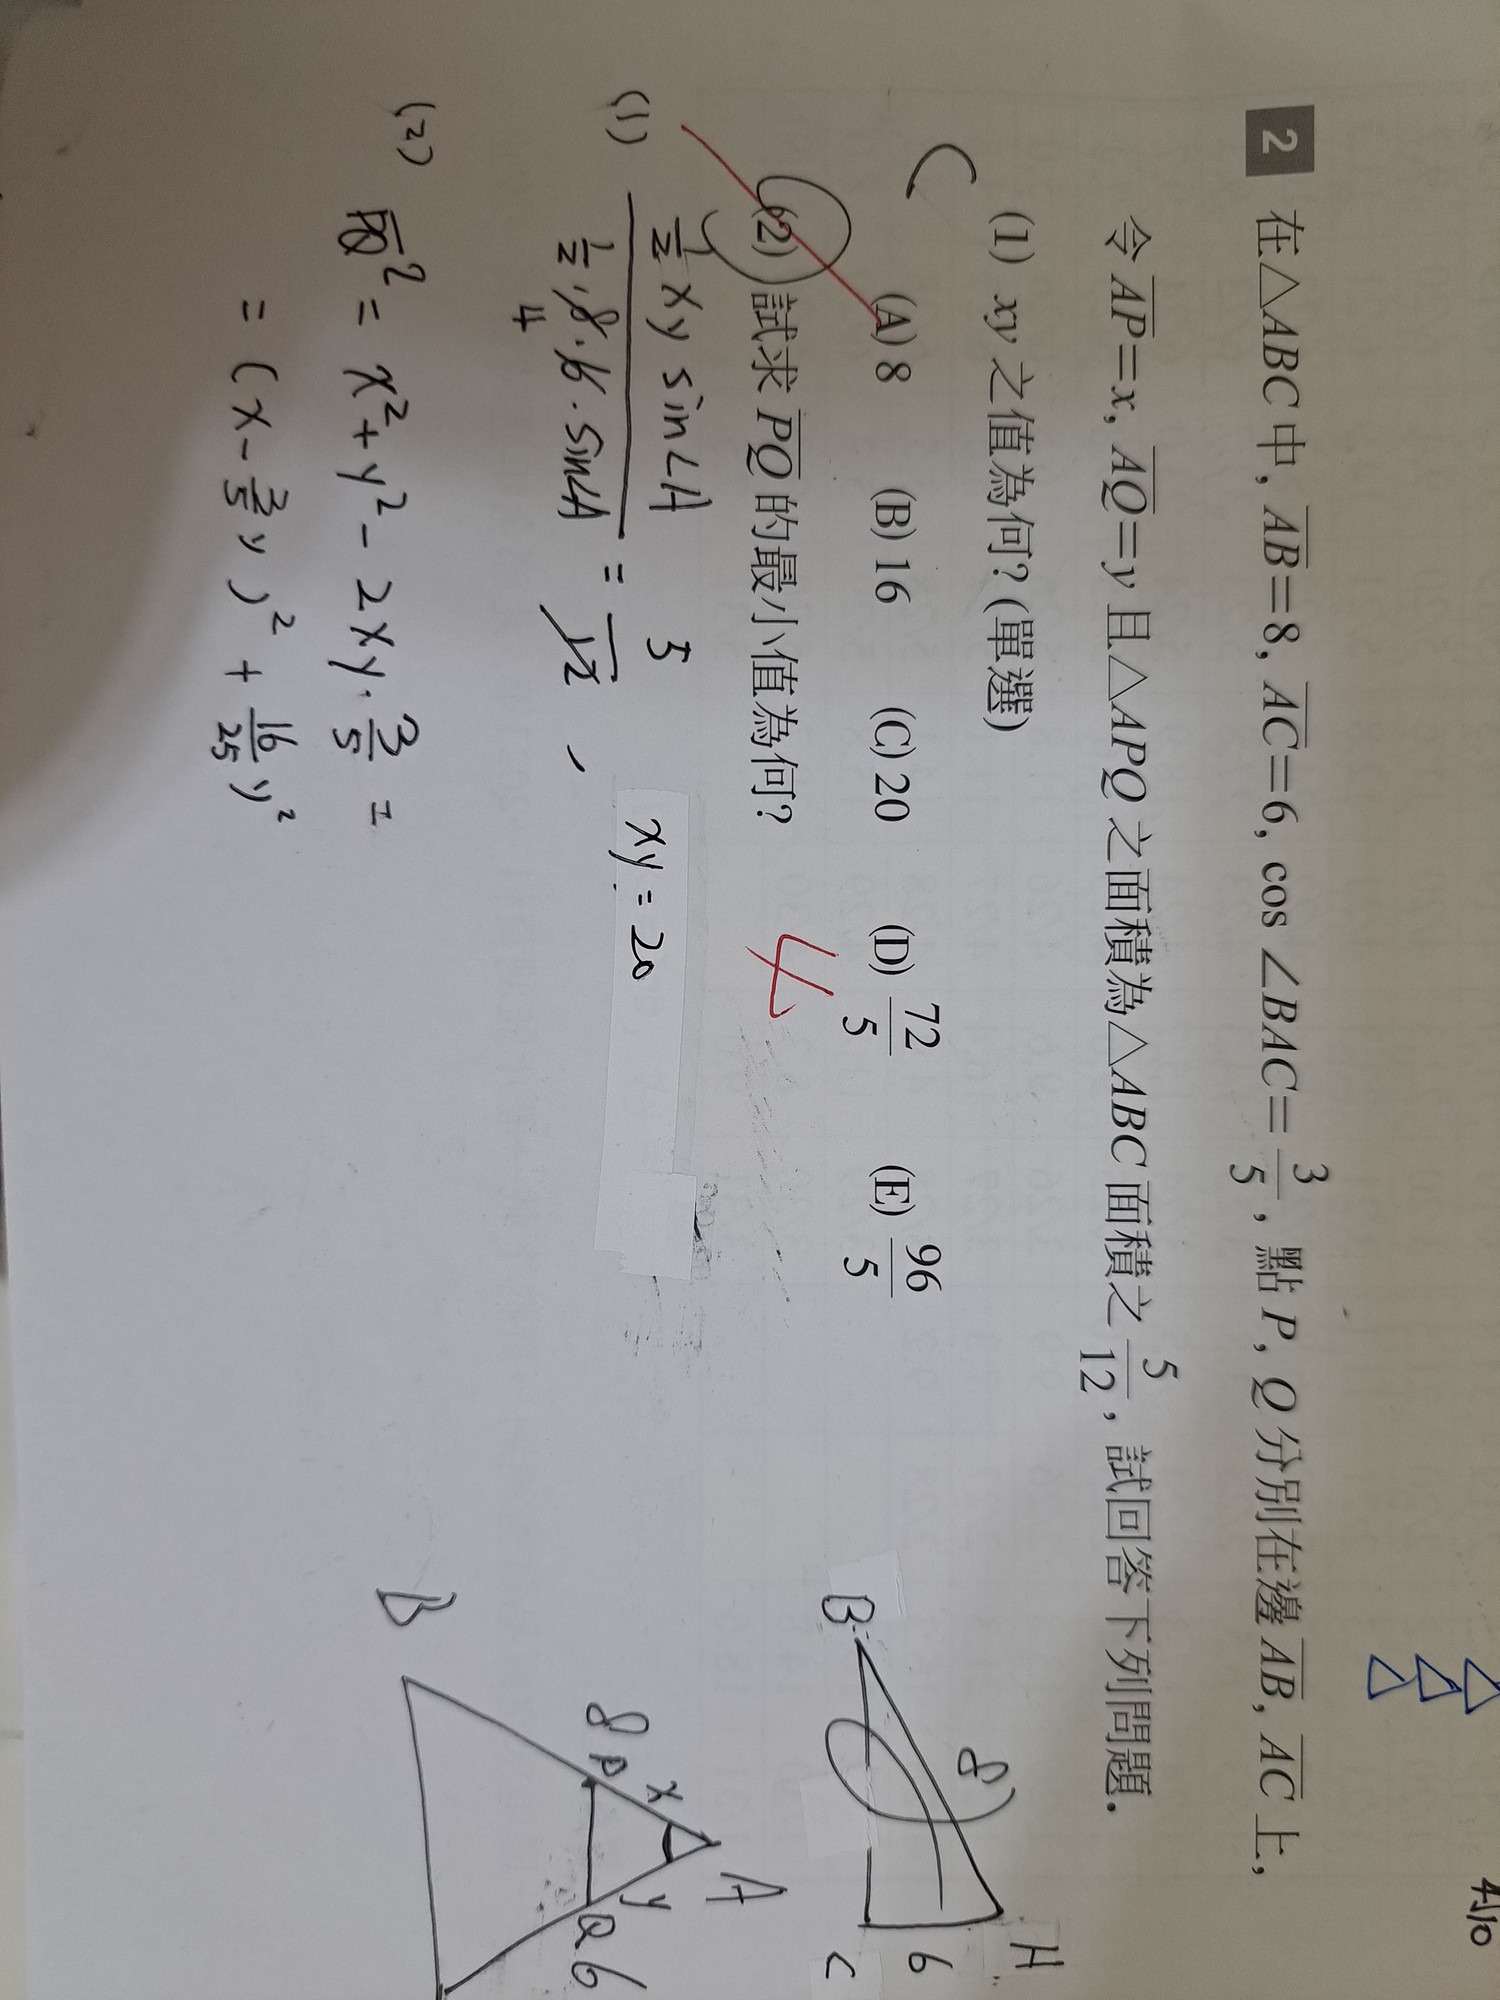 4/10
2 在△ABC中, AB=8, AC=6, cos ∠BAC=3/5, 點P, Q分別在邊AB, AC上,
令AP=x, AQ=y且△APQ之面積為△ABC面積之5/12, 試回答下列問題.
(1) xy之值為何?(單選)
C
(A) 8 (B) 16 (C) 20 (D) 72/5 (E) 96/5
(2) 試求PQ的最小值為何?
4
(1) (1/2 xy sin∠A)/(1/2·8·6·sin∠A) = 5/12, xy = 20
4
(2) PQ² = x² + y² - 2xy·3/5 =
= (x - 3/5 y)² + 16/25 y²
B 8 H 6 C
A x y
8 P Q 6
B